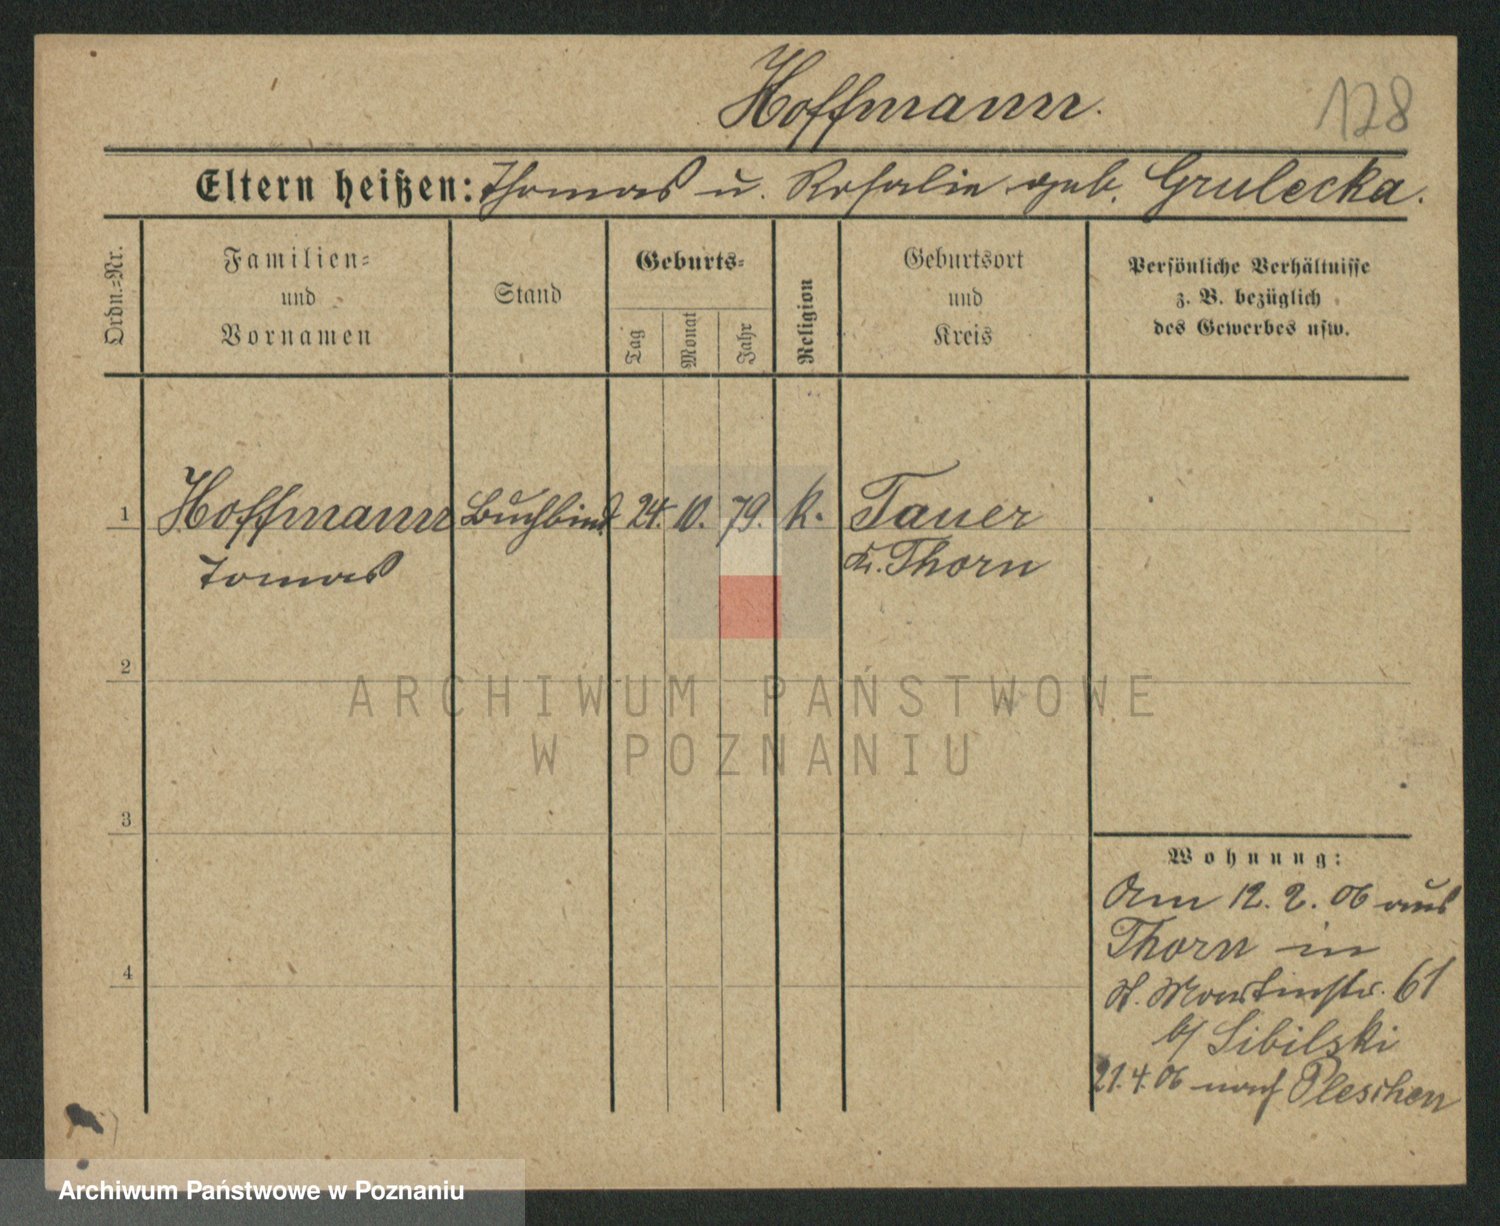 Hoffmann.
128
Eltern heißen: Thomas u. Rosalie geb. Grulecka.
Ordn.=Nr.
Familien=
und
Vornamen
Stand
Geburts=
Tag
Monat
Jahr
Religion
Geburtsort
und
Kreis
Persönliche Verhältnisse
z. B. bezüglich
des Gewerbes usw.
1 Hoffmann Buchbind. 24. 10. 79. k. Tauer
Tomas Kr. Thorn
2
ARCHIWUM PAŃSTWOWE
W POZNANIU
3
Wohnung:
Am 12. 2. 06 aus
Thorn in
4
St. Martinstr. 61
b/ Sibilski
21.4.06 nach Pleschen
Archiwum Państwowe w Poznaniu